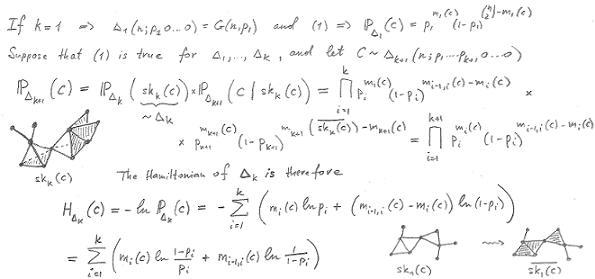 If k=1 ⇒ Δ₁(n; p₁ 0...0) = G(n, p₁) and (1) ⇒ ℙ_{Δ₁}(C) = p₁^{m₁(C)} (1-p₁)^{\binom{n}{2} - m₁(C)}
Suppose that (1) is true for Δ₁, ..., Δ_k, and let C ~ Δ_{k+1}(n; p₁ ... p_{k+1}, 0...0)
ℙ_{Δ_{k+1}}(C) = ℙ_{Δ_k}(sk_k(C)) × ℙ_{Δ_{k+1}}(C | sk_k(C)) = ∏_{i=1}^{k} p_i^{m_i(C)} (1-p_i)^{m_{i-1,i}(C) - m_i(C)} ×
~ Δ_k
× p_{k+1}^{m_{k+1}(C)} (1-p_{k+1})^{m_{k+1}(\overline{sk_k(C)}) - m_{k+1}(C)} = ∏_{i=1}^{k+1} p_i^{m_i(C)} (1-p_i)^{m_{i-1,i}(C) - m_i(C)}
sk_k(C)
The Hamiltonian of Δ_k is therefore
H_{Δ_k}(C) = - ln ℙ_{Δ_k}(C) = - ∑_{i=1}^{k} (m_i(C) ln p_i + (m_{i-1,i}(C) - m_i(C)) ln(1-p_i))
= ∑_{i=1}^{k} (m_i(C) ln \frac{1-p_i}{p_i} + m_{i-1,i}(C) ln \frac{1}{1-p_i})
sk₁(C) ⇝ \overline{sk₁(C)}